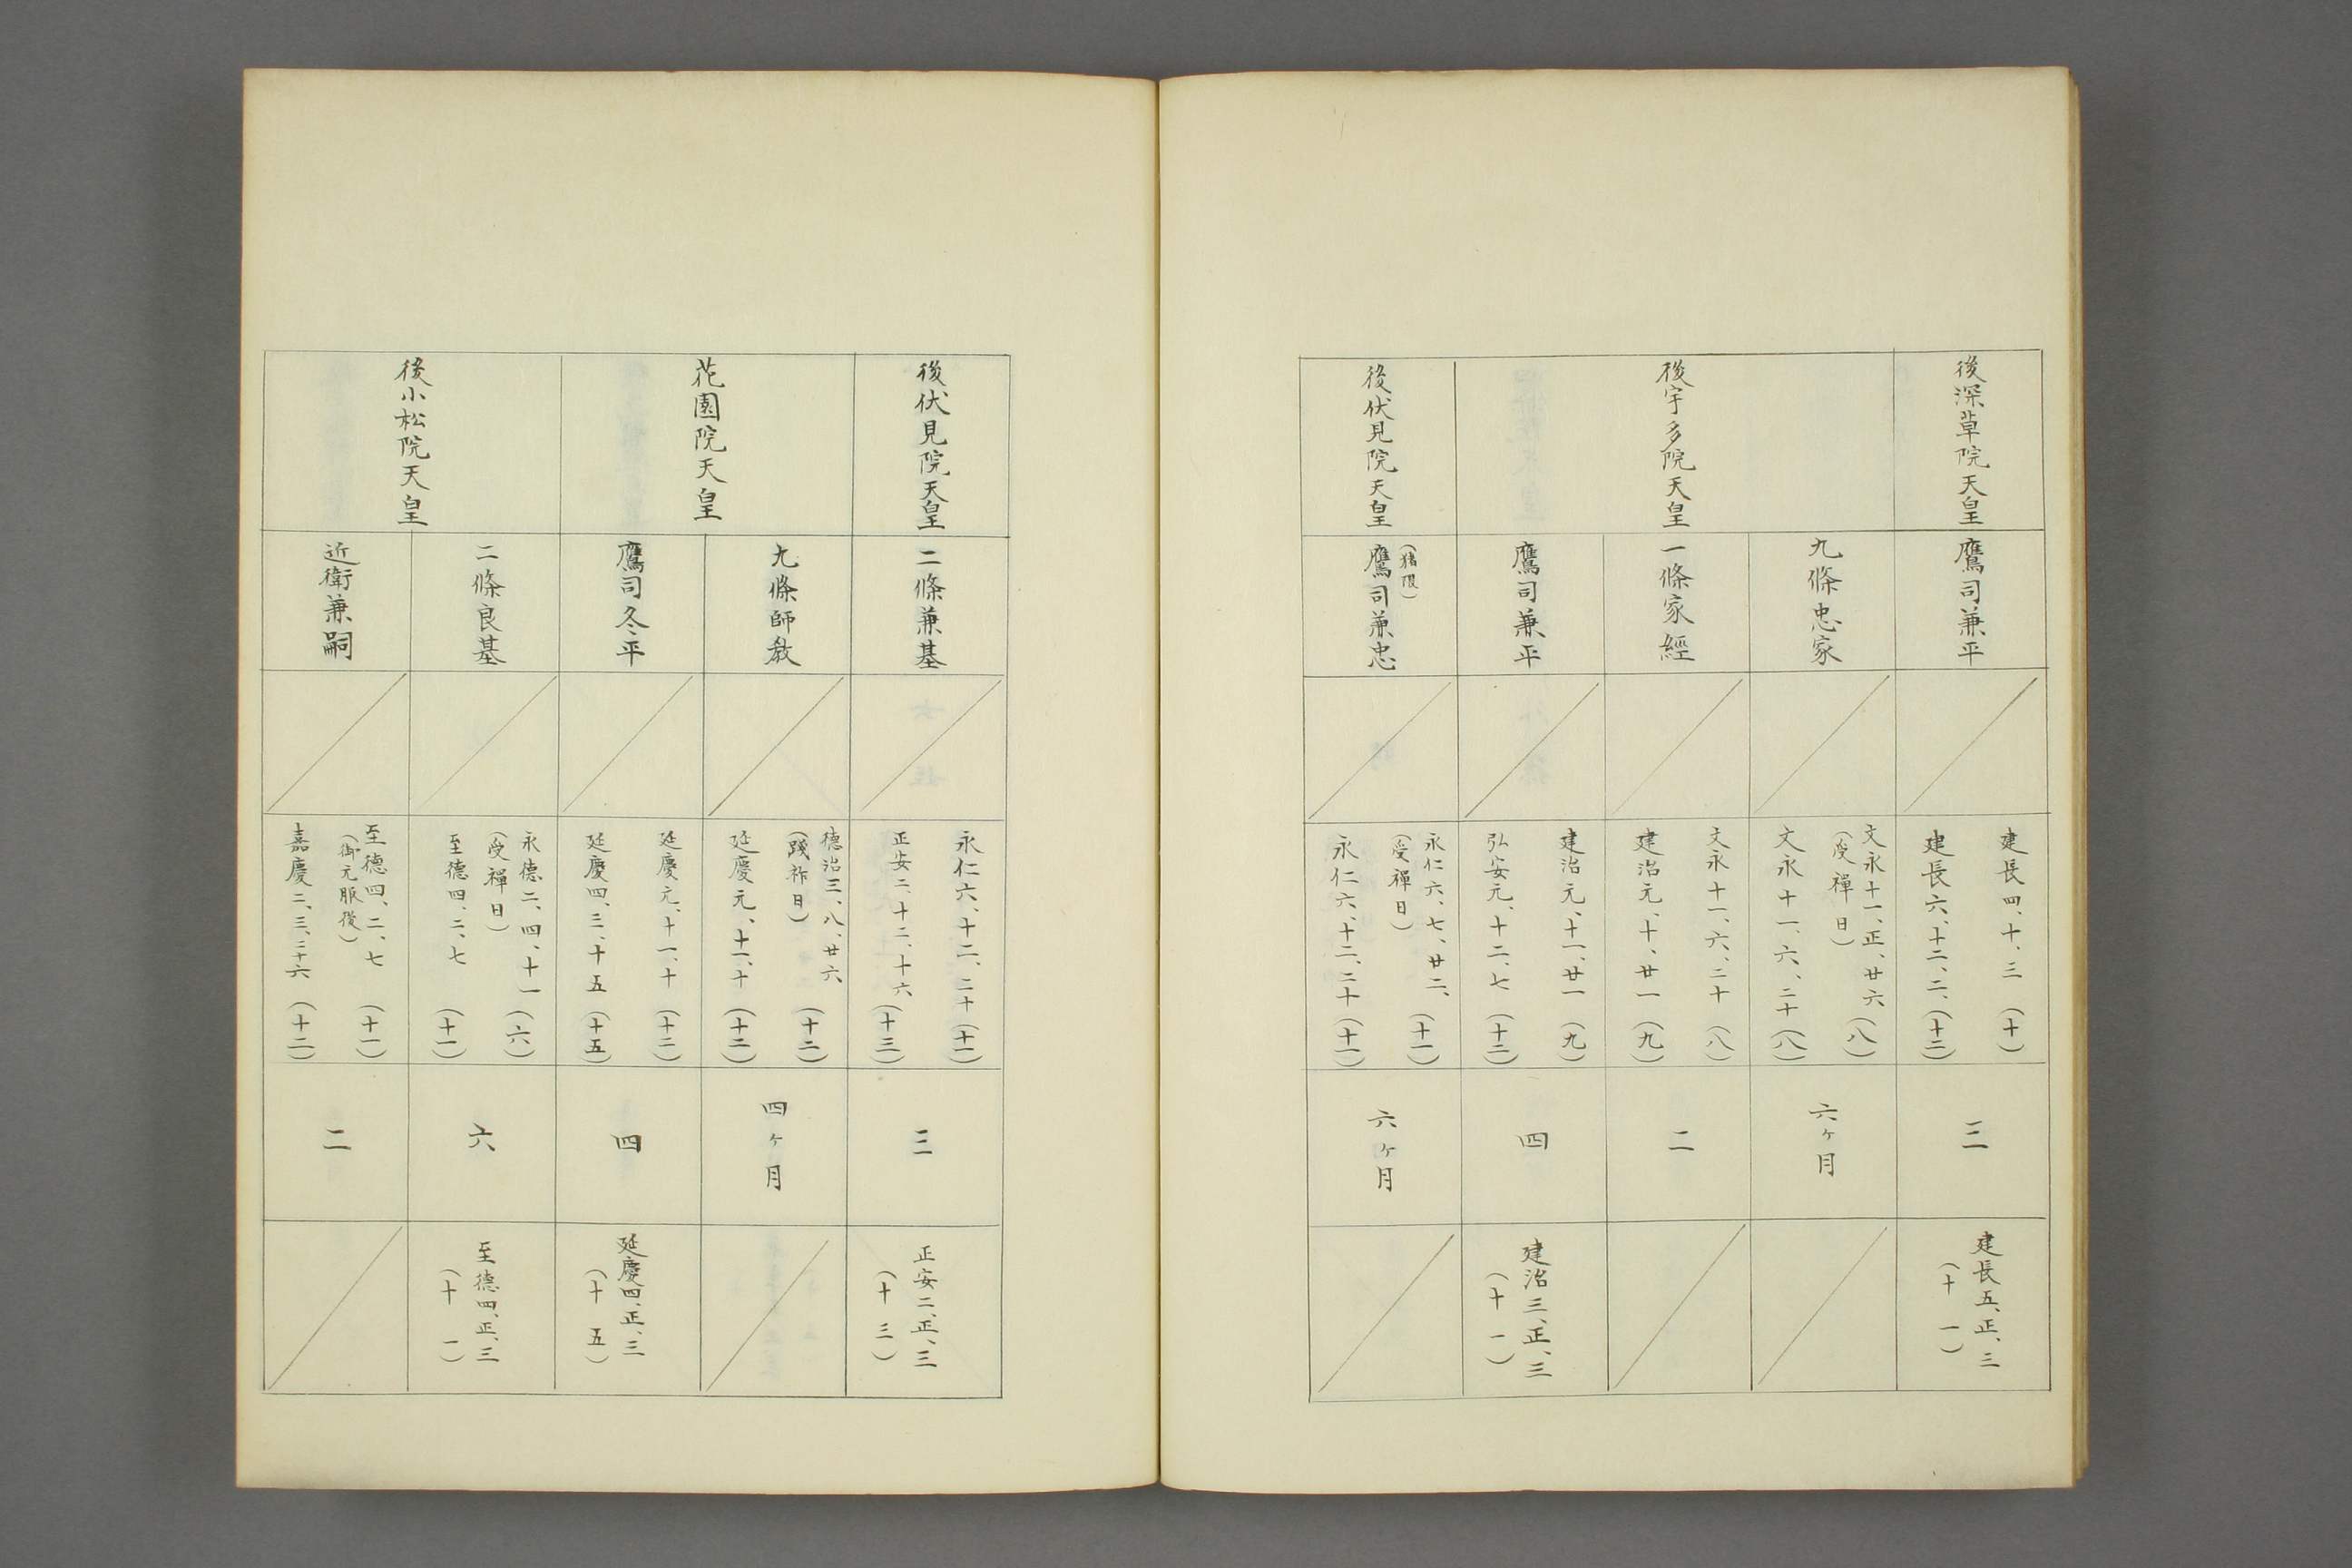 後深草院天皇
鷹司兼平
建長四、十、三（十）
建長六、十二、二、（十二）
三
建長五、正、三
（十一）
後宇多院天皇
九條忠家
文永十一、正、廿六（八）
（受禪日）
文永十一、六、二十（八）
六ヶ月
一條家經
文永十一、六、二十（八）
建治元、十、廿一（九）
二
鷹司兼平
建治元、十一、廿一（九）
弘安元、十二、七（十二）
四
建治三、正、三
（十一）
後伏見院天皇
（猪隈）
鷹司兼忠
永仁六、七、廿二、（十一）
（受禪日）
永仁六、十二、二十（十一）
六ヶ月
後伏見院天皇
二條兼基
永仁六、十二、二十（十一）
正安二、十二、十六（十三）
三
正安二、正、三
（十三）
花園院天皇
九條師教
德治三、八、廿六（十二）
（踐祚日）
延慶元、十一、十（十二）
四ヶ月
鷹司冬平
延慶元、十一、十（十二）
延慶四、三、十五（十五）
四
延慶四、正、三
（十五）
後小松院天皇
二條良基
永德二、四、十一（六）
（受禪日）
至德四、二、七（十一）
六
至德四、正、三
（十一）
近衛兼嗣
至德四、二、七（十一）
（御元服後）
嘉慶二、三、二十六（十二）
二